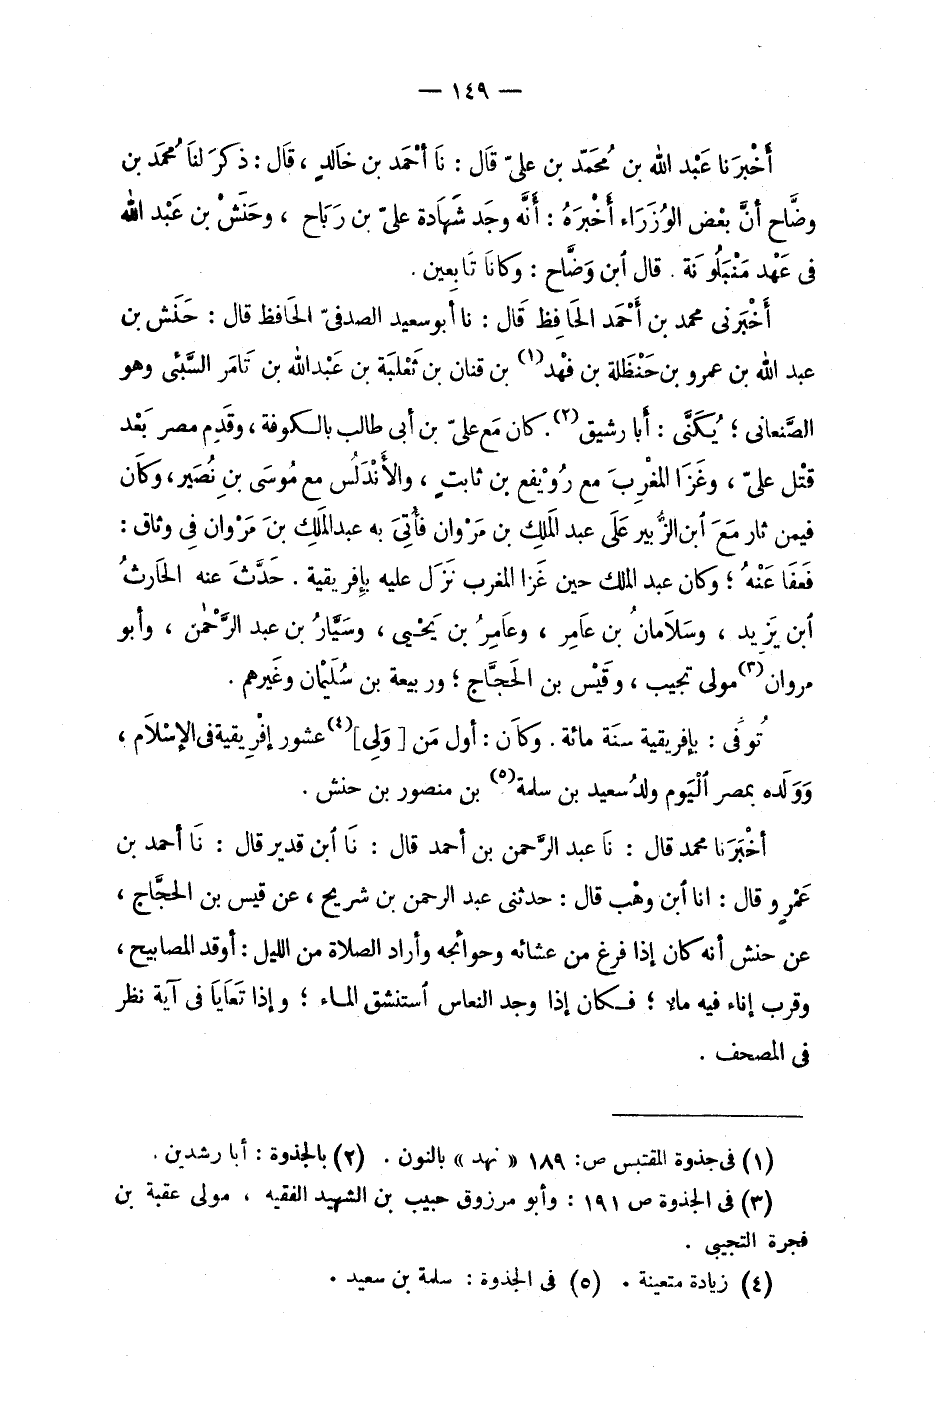 — ١٤٩ —
أَخْبَرَنا عَبْد الله بن مُحَمَّد بن علىّ قَال : نَا أحْمَد بن خَالدٍ ، قَال : ذكرَ لنَا مُحمَد بن
وضَّاح أنَّ بعْض الوُزَرَاء أَخْبرَهُ : أَنَّه وجَد شَهَادة علىّ بن رَبَاح ، وحَنَشْ بن عَبْد الله
فى عَهْد مَنْبَلُونَة . قال ابن وَضَّاح : وَكانَا تَابِعين .
أَخْبَرَنى محمد بن أَحْمَد الحَافِظ قَال : نا أبو سعيد الصدفىّ الحَافظ قال : حَنَش بن
عبد الله بن عمرو بن حَنْظَلة بن فَهْد(١) بن قنان بن ثَعْلبَة بن عَبْد الله بن تَامَر السَّبْئى وهو
الصَّنعانى ؛ يُكَنَّى : أَبا رشيق(٢). كان مَع علىّ بن أبى طالب بالكوفة ، وقَدِم مصر بَعْد
قتْل علىّ ، وغَزَا المغْرِبَ مع رُوَيْفع بن ثابتٍ ، والأَنْدَلُس مع مُوسَى بن نُصَير ، وكَان
فيمن ثار مَعَ ابن الزُّبير عَلَى عبد المَلِك بن مَرْوان فأُتِىَ به عبد المَلِك بنَ مَرْوان فِى وثاق :
فَعَفَا عَنْهُ ؛ وكان عبد الملك حين غَزا المغرب نَزَل عليه بإِفريقية . حَدَّثَ عنه الحَارثُ
ابن يَزِيد ، وسَلَامانُ بن عامِر ، وعامِرُ بن يَحْيى ، وسَيَّارُ بن عبد الرَّحْمٰن ، وأبو
مروان(٣) مولى تجيب ، وقَيْس بن الحَجَّاج ؛ وربيعة بن سُلَيْمان وغَيرهم .
تُوفَى : بإفريقية سنَة مائة . وكَان : أول مَن [ وَلِى ](٤) عشور إفْرِيقية فى الإسْلَام ،
وَوَلَده بمصر الْيَوم ولدُ سعيد بن سلمة(٥) بن منصور بن حنش .
أخْبَرَنا محمد قال : نَا عبد الرَّحمن بن أحمد قال : نَا ابن قدير قال : نَا أحمد بن
عَمْرٍو قال : انا ابن وهْب قال : حدثنى عبد الرحمن بن شريح ، عن قيس بن الحجَّاج ،
عن حنش أنه كان إذا فرغ من عشائه وحوائجه وأراد الصلاة من الليل : أوقد المصابيح ،
وقرب إناء فيه ماء ؛ فكان إذا وجد النعاس استنشق الماء ؛ وإذا تَعَايَا فى آية نظر
فى المصحف .
(١) فى جذوة المقتبس ص: ١٨٩ « نهد » بالنون . (٢) بالجذوة : أبا رشدين .
(٣) فى الجذوة ص ١٩١ : وأبو مرزوق حبيب بن الشهيد الفقيه ، مولى عقبة بن
فجرة التجيبى .
(٤) زيادة متعينة . (٥) فى الجذوة : سلمة بن سعيد .